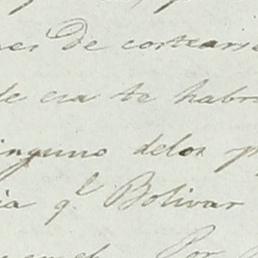 de cortarse
de esa te habr
ninguno delos p
ia q.l Bolivar
Por